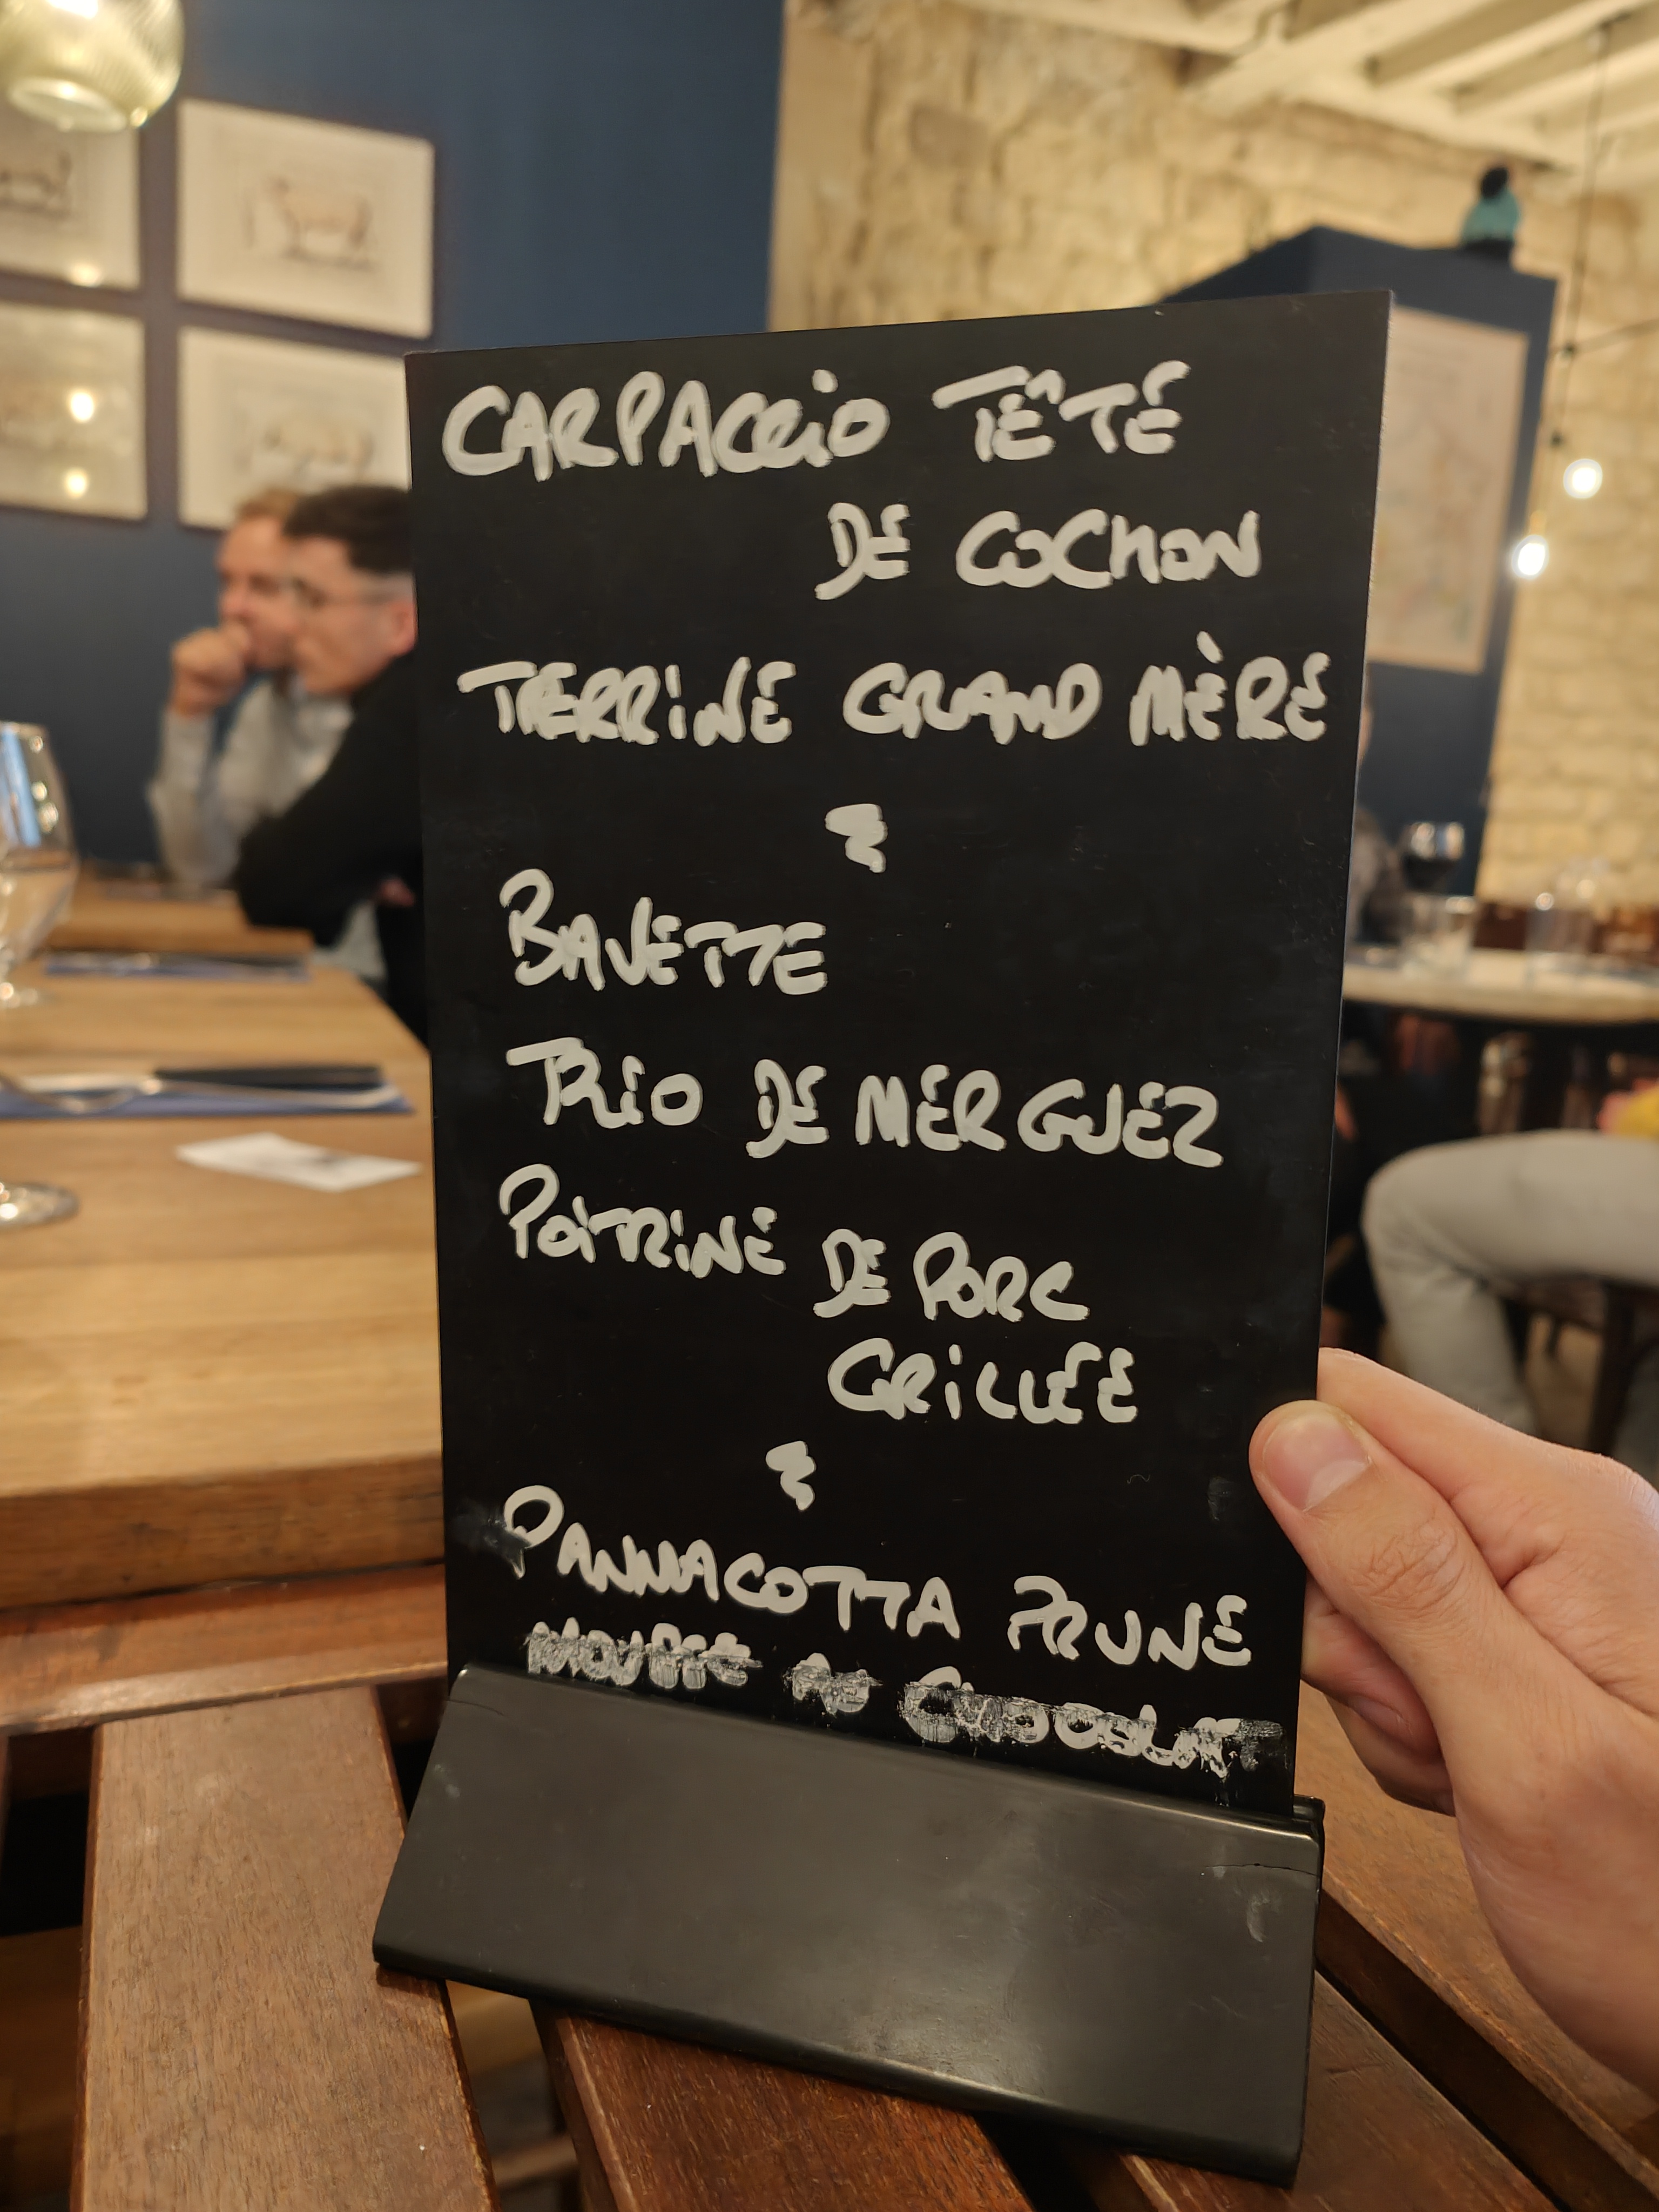 CARPACCIO TÊTE
DE COCHON
TERRINE GRAND MÈRE
BAVETTE
TRIO DE MERGUEZ
POITRINE DE PORC
GRILLÉE
PANNACOTTA PRUNE
MOUSSE AU CHOCOLAT